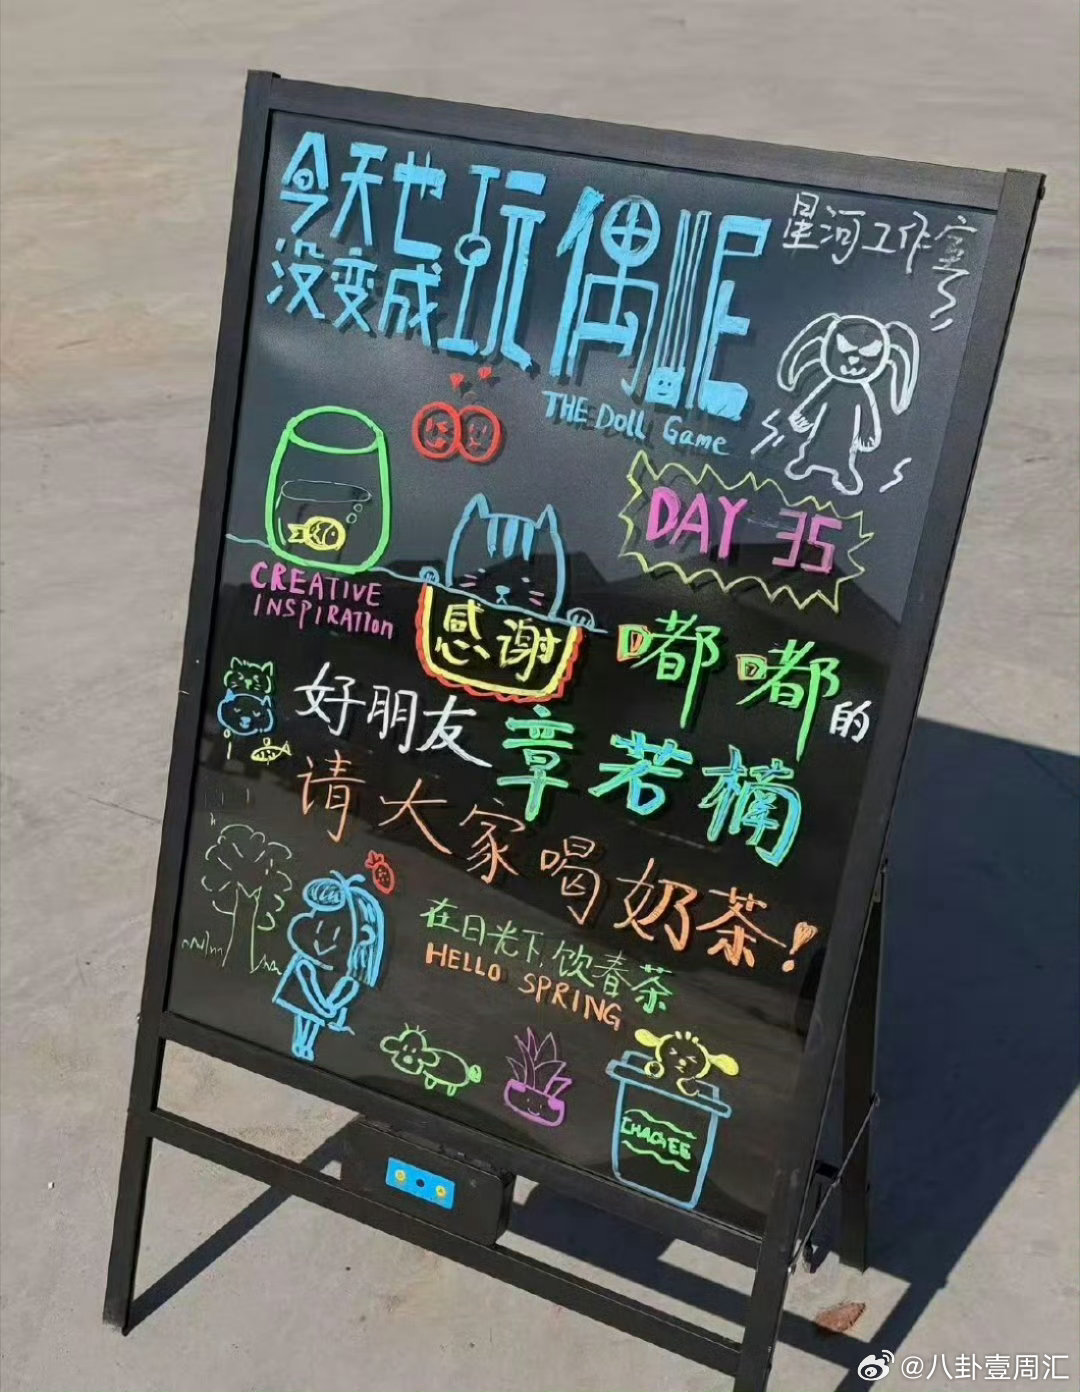 今天也
没变成
玩偶呢
THE Doll Game
星河工作室
DAY 35
CREATIVE
INSPIRATION
感谢
嘟嘟的
好朋友章若楠
请大家喝奶茶！
在日光下,饮春茶
HELLO SPRING
@八卦壹周汇